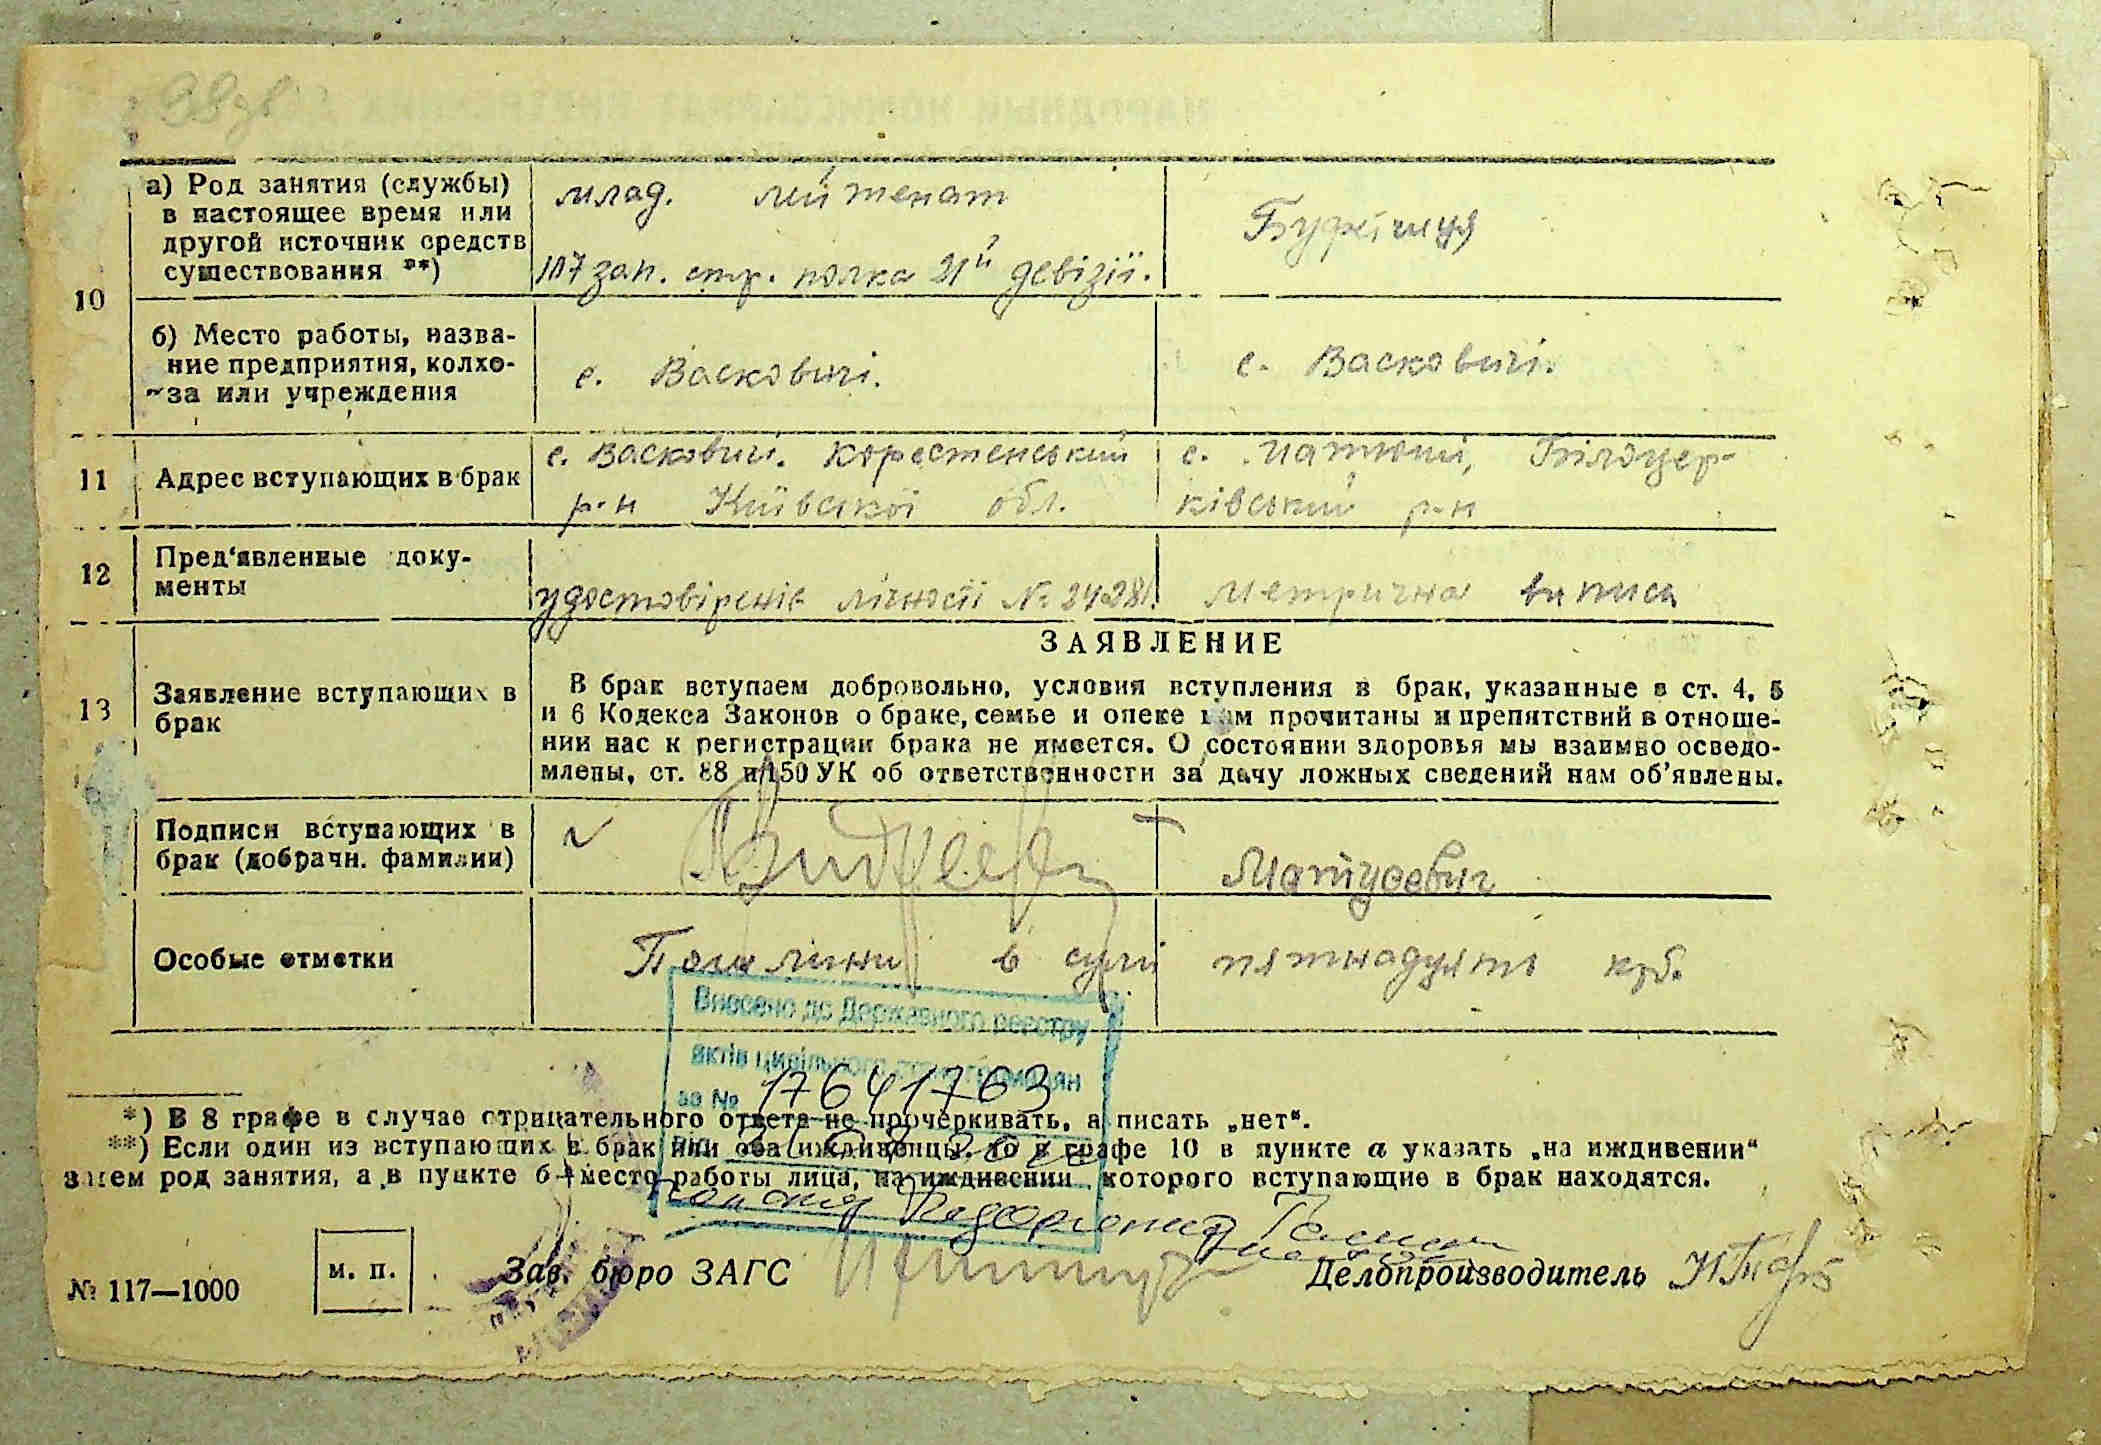 98зв
10
а) Род занятия (службы)
в настоящее время или
другой источник средств
существования **)
млад. лейтенат
107 зап. стр. полка 21й девізії.
б) Место работы, назва-
ние предприятия, колхо-
за или учреждения
с. Васковичі.
с. Васковичі.
11
Адрес вступающих в брак
с. Васковичі. Коростенський
р-н Київської обл.
с. Матюші, Білоцер-
ківський р-н
12
Пред'явленные доку-
менты
удостовіреніе лічності № 2428
Метрична випись
13
Заявление вступающих в
брак
ЗАЯВЛЕНИЕ
В брак вступаем добровольно, условия вступления в брак, указанные в ст. 4, 5
и 6 Кодекса Законов о браке, семье и опеке нам прочитаны и препятствий в отноше-
нии нас к регистрации брака не имеется. О состоянии здоровья мы взаимно осведо-
млены, ст. 88 и 150 УК об ответственности за дачу ложных сведений нам об'явлены.
Подписи вступающих в
брак (добрачн. фамилии)
Матусевич
Особые отметки
в сумі пятнадцять крб.
Внесено до Державного реєстру
актів цивільного стану громадян
за № 17641763
*) В 8 графе в случае отрицательного ответа не прочеркивать, а писать „нет“.
**) Если один из вступающих в брак или оба иждивенцы, то в графе 10 в пункте а указать „на иждивении“
затем род занятия, а в пункте б—место работы лица, на иждивении которого вступающие в брак находятся.
№ 117—1000
м. п.
Зав. бюро ЗАГС
Делопроизводитель